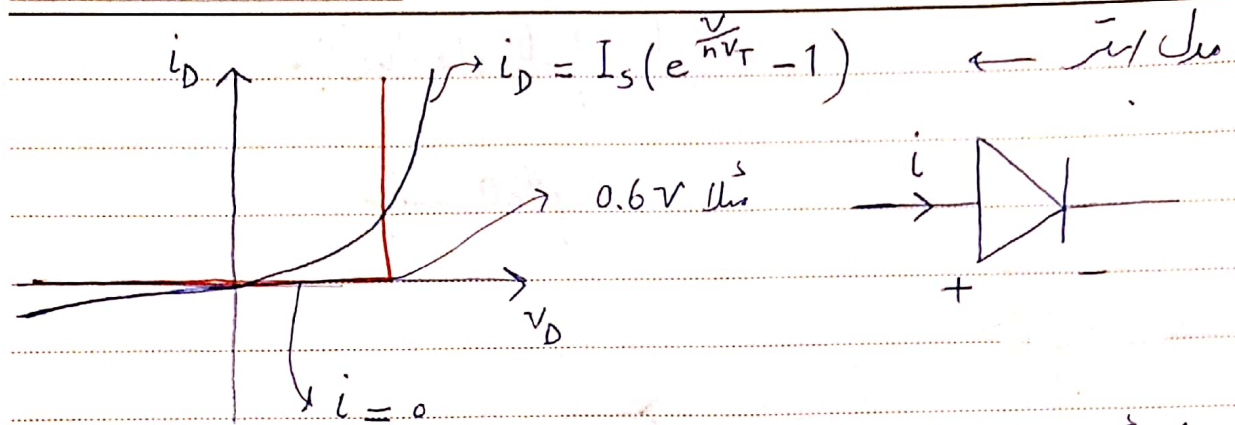 i_D = I_S(e^{V/nV_T} - 1) ← مدل
i_D
0.6 V مثلاً
i
+ −
V_D
i = 0